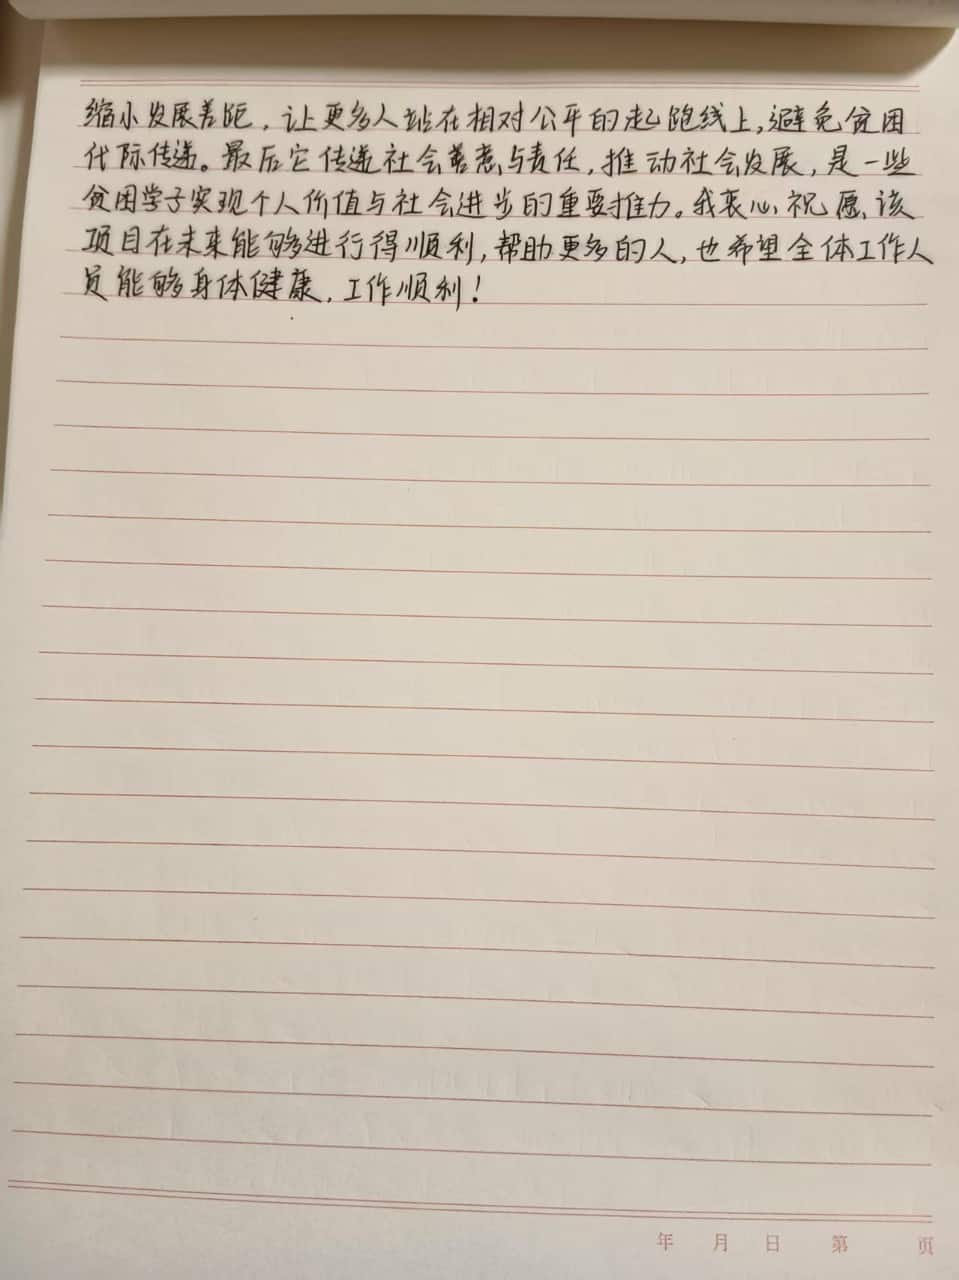 缩小发展差距，让更多人站在相对公平的起跑线上，避免贫困
代际传递。最后它传递社会善意与责任，推动社会发展，是一些
贫困学子实现个人价值与社会进步的重要推力。我衷心祝愿该
项目在未来能够进行得顺利，帮助更多的人，也希望全体工作人
员能够身体健康，工作顺利！
年 月 日 第 页